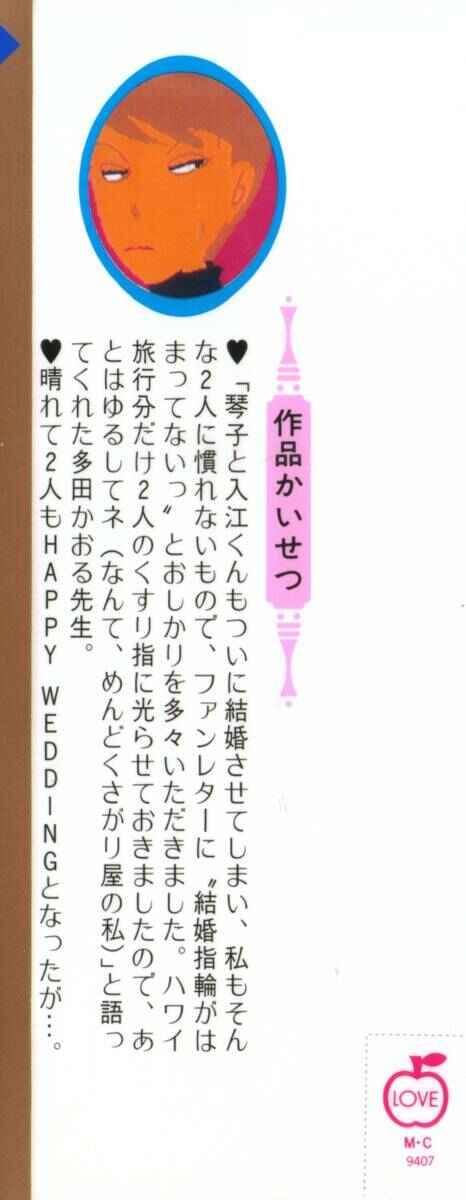 作品かいせつ
♥「琴子と入江くんもついに結婚させてしまい、私もそん
な2人に慣れないもので、ファンレターに〝結婚指輪がは
まってないっ〟とおしかりを多々いただきました。ハワイ
旅行分だけ2人のくすり指に光らせておきましたので、あ
とはゆるしてネ(なんて、めんどくさがり屋の私)」と語っ
てくれた多田かおる先生。
♥晴れて2人もHAPPY WEDDINGとなったが…。
LOVE
M・C
9407